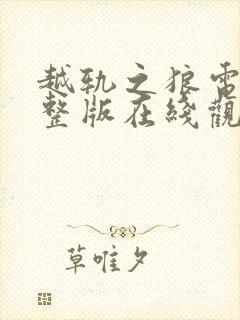 越轨之狼雷
整版在线觀
草唯夕